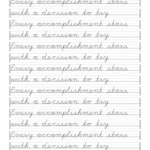 Every accomplishment stars
with a decision to try
Every accomplishment stars
with a decision to try
Every accomplishment stars
with a decision to try
Every accomplishment stars
with a decision to try
Every accomplishment stars
with a decision to try
Every accomplishment stars
with a decision to try